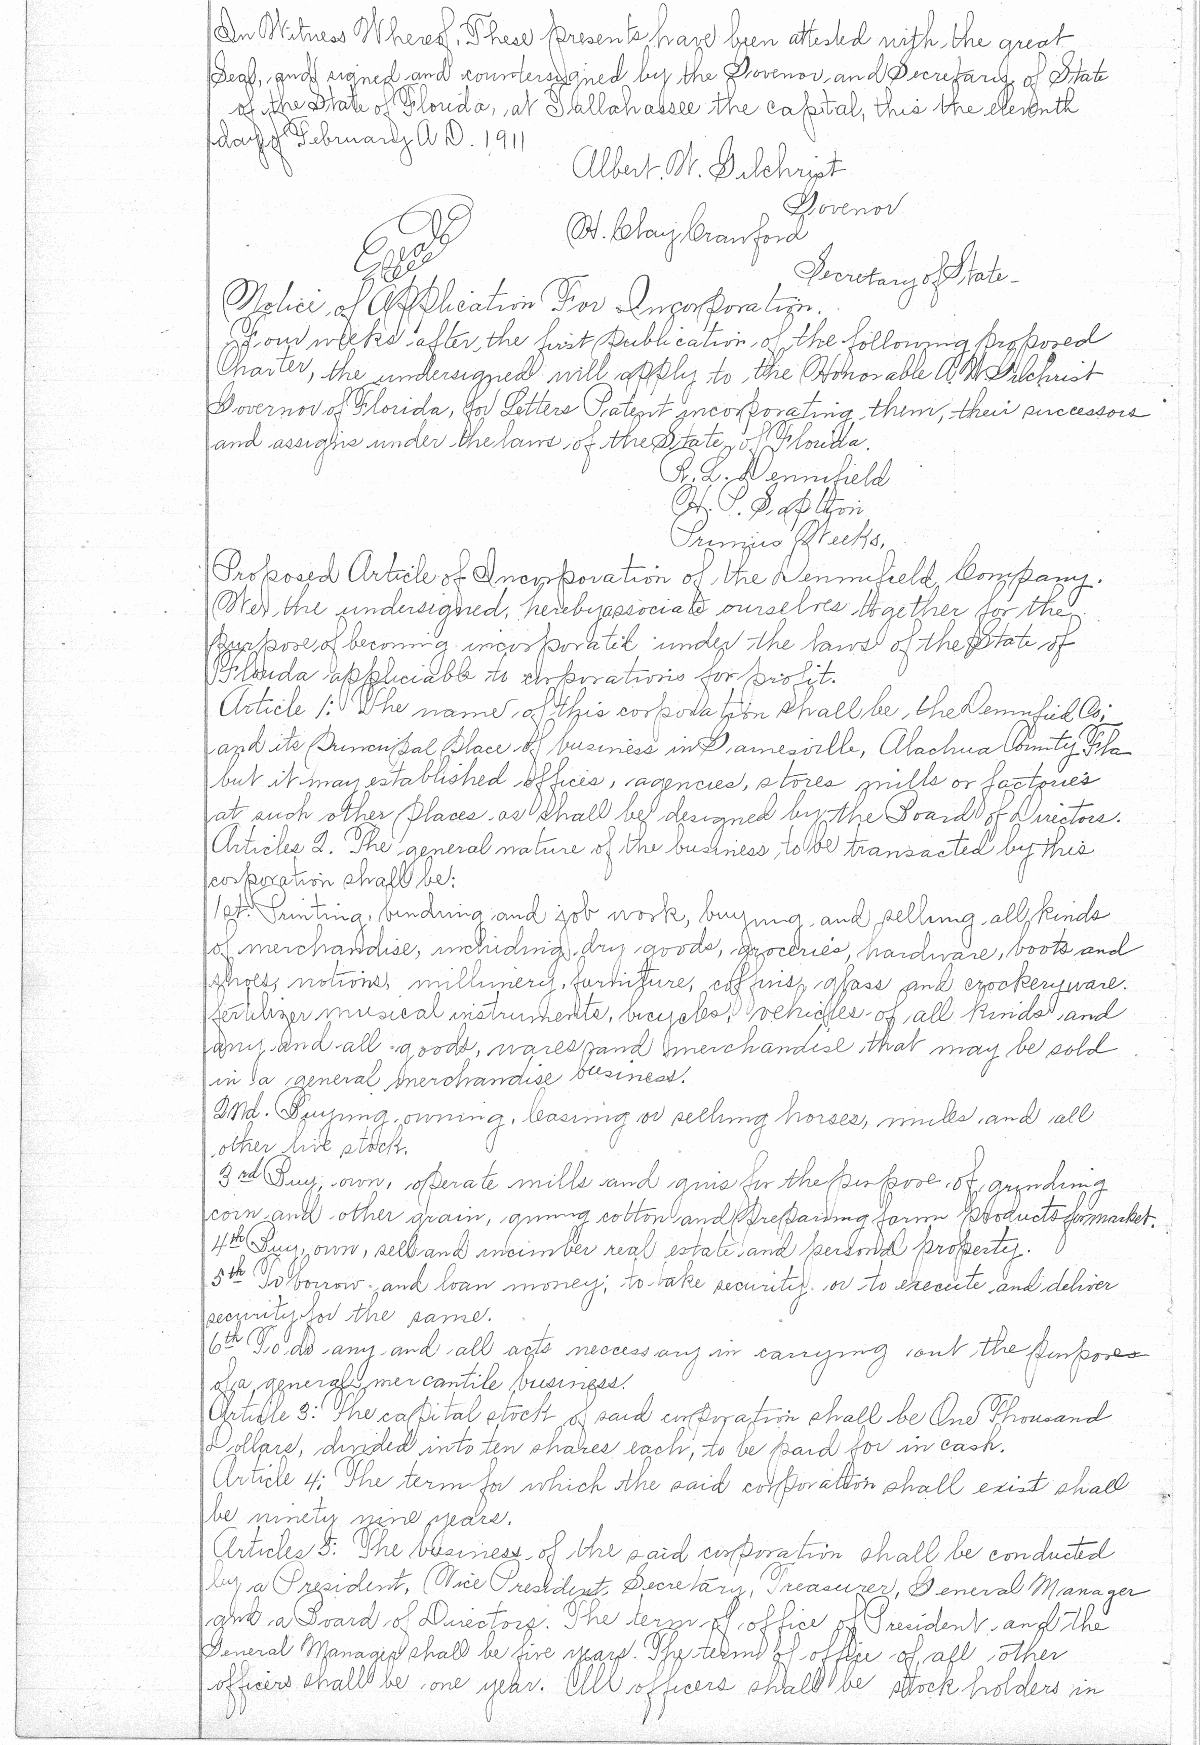 In Witness Whereof, These presents have been attested with the great
Seal, and signed and countersigned by the Govenor, and Secretary of State
of the State of Florida, at Tallahassee the capital, this the eleventh
day of February A.D. 1911
Albert. W. Gilchrist
Govenor
H. Clay Crawford
Secretary of State-
Seal
Notice of Application For Incorporation.
Four weeks after the first publication of the following proposed
Charter, the undersigned will apply to the Honorable A W Gilchrist
Governor of Florida, for Letters Patent incorporating them, their successors
and assigns under the laws of the State of Florida.
R. L. Dennifield
H. P.
Primus Weeks.
Proposed Article of Incorporation of the Dennifield Company.
We, the undersigned, hereby associate ourselves together for the
purpose of becoming incorporated under the laws of the State of
Florida appliciable to corporations for profit.
Article 1: The name of this corporation shall be, the Dennified Co;
and its principal place of business in Gainesville, Alachua County Fla
but it may established offices, agencies, stores mills or factories
at such other places as shall be designed by the Board of Directors.
Articles 2. The general nature of the business to be transacted by this
corporation shall be:
1st. Printing, bindring and job work, buying and selling all kinds
of merchandise, including dry goods, groceries, hardware, boots and
shoes, notions, millinery, furniture, coffins, glass and crockeryware.
fertilizer musical instruments, bicycles, vehicles of all kinds and
any and all goods, wares and merchandise that may be sold
in a general merchandise business.
2nd. Buying, owning, leasing or selling horses, mules and all
other live stock.
3rd Buy, own, operate mills and gins for the purpose of grinding
corn and other grain, gining cotton and preparing farm products for market.
4th Buy, own, sell and incimber real estate and personal property.
5th To borrow and loan money; to take security or to execute and deliver
security for the same.
6th To do any and all acts neccessary in carrying out the purposes
of a general mercantile business.
Article 3: The capital stock of said corporation shall be One Thousand
Dollars, divided into ten shares each, to be paid for in cash.
Article 4: The term for which the said corporation shall exist shall
be ninety nine years.
Articles 5: The business of the said corporation shall be conducted
by a President, Vice President, Secretary, Treasurer, General Manager
and a Board of Directors. The term of office of President and the
General Manager shall be five years. The terms of office of all other
officers shall be one year. All officers shall be stock holders in